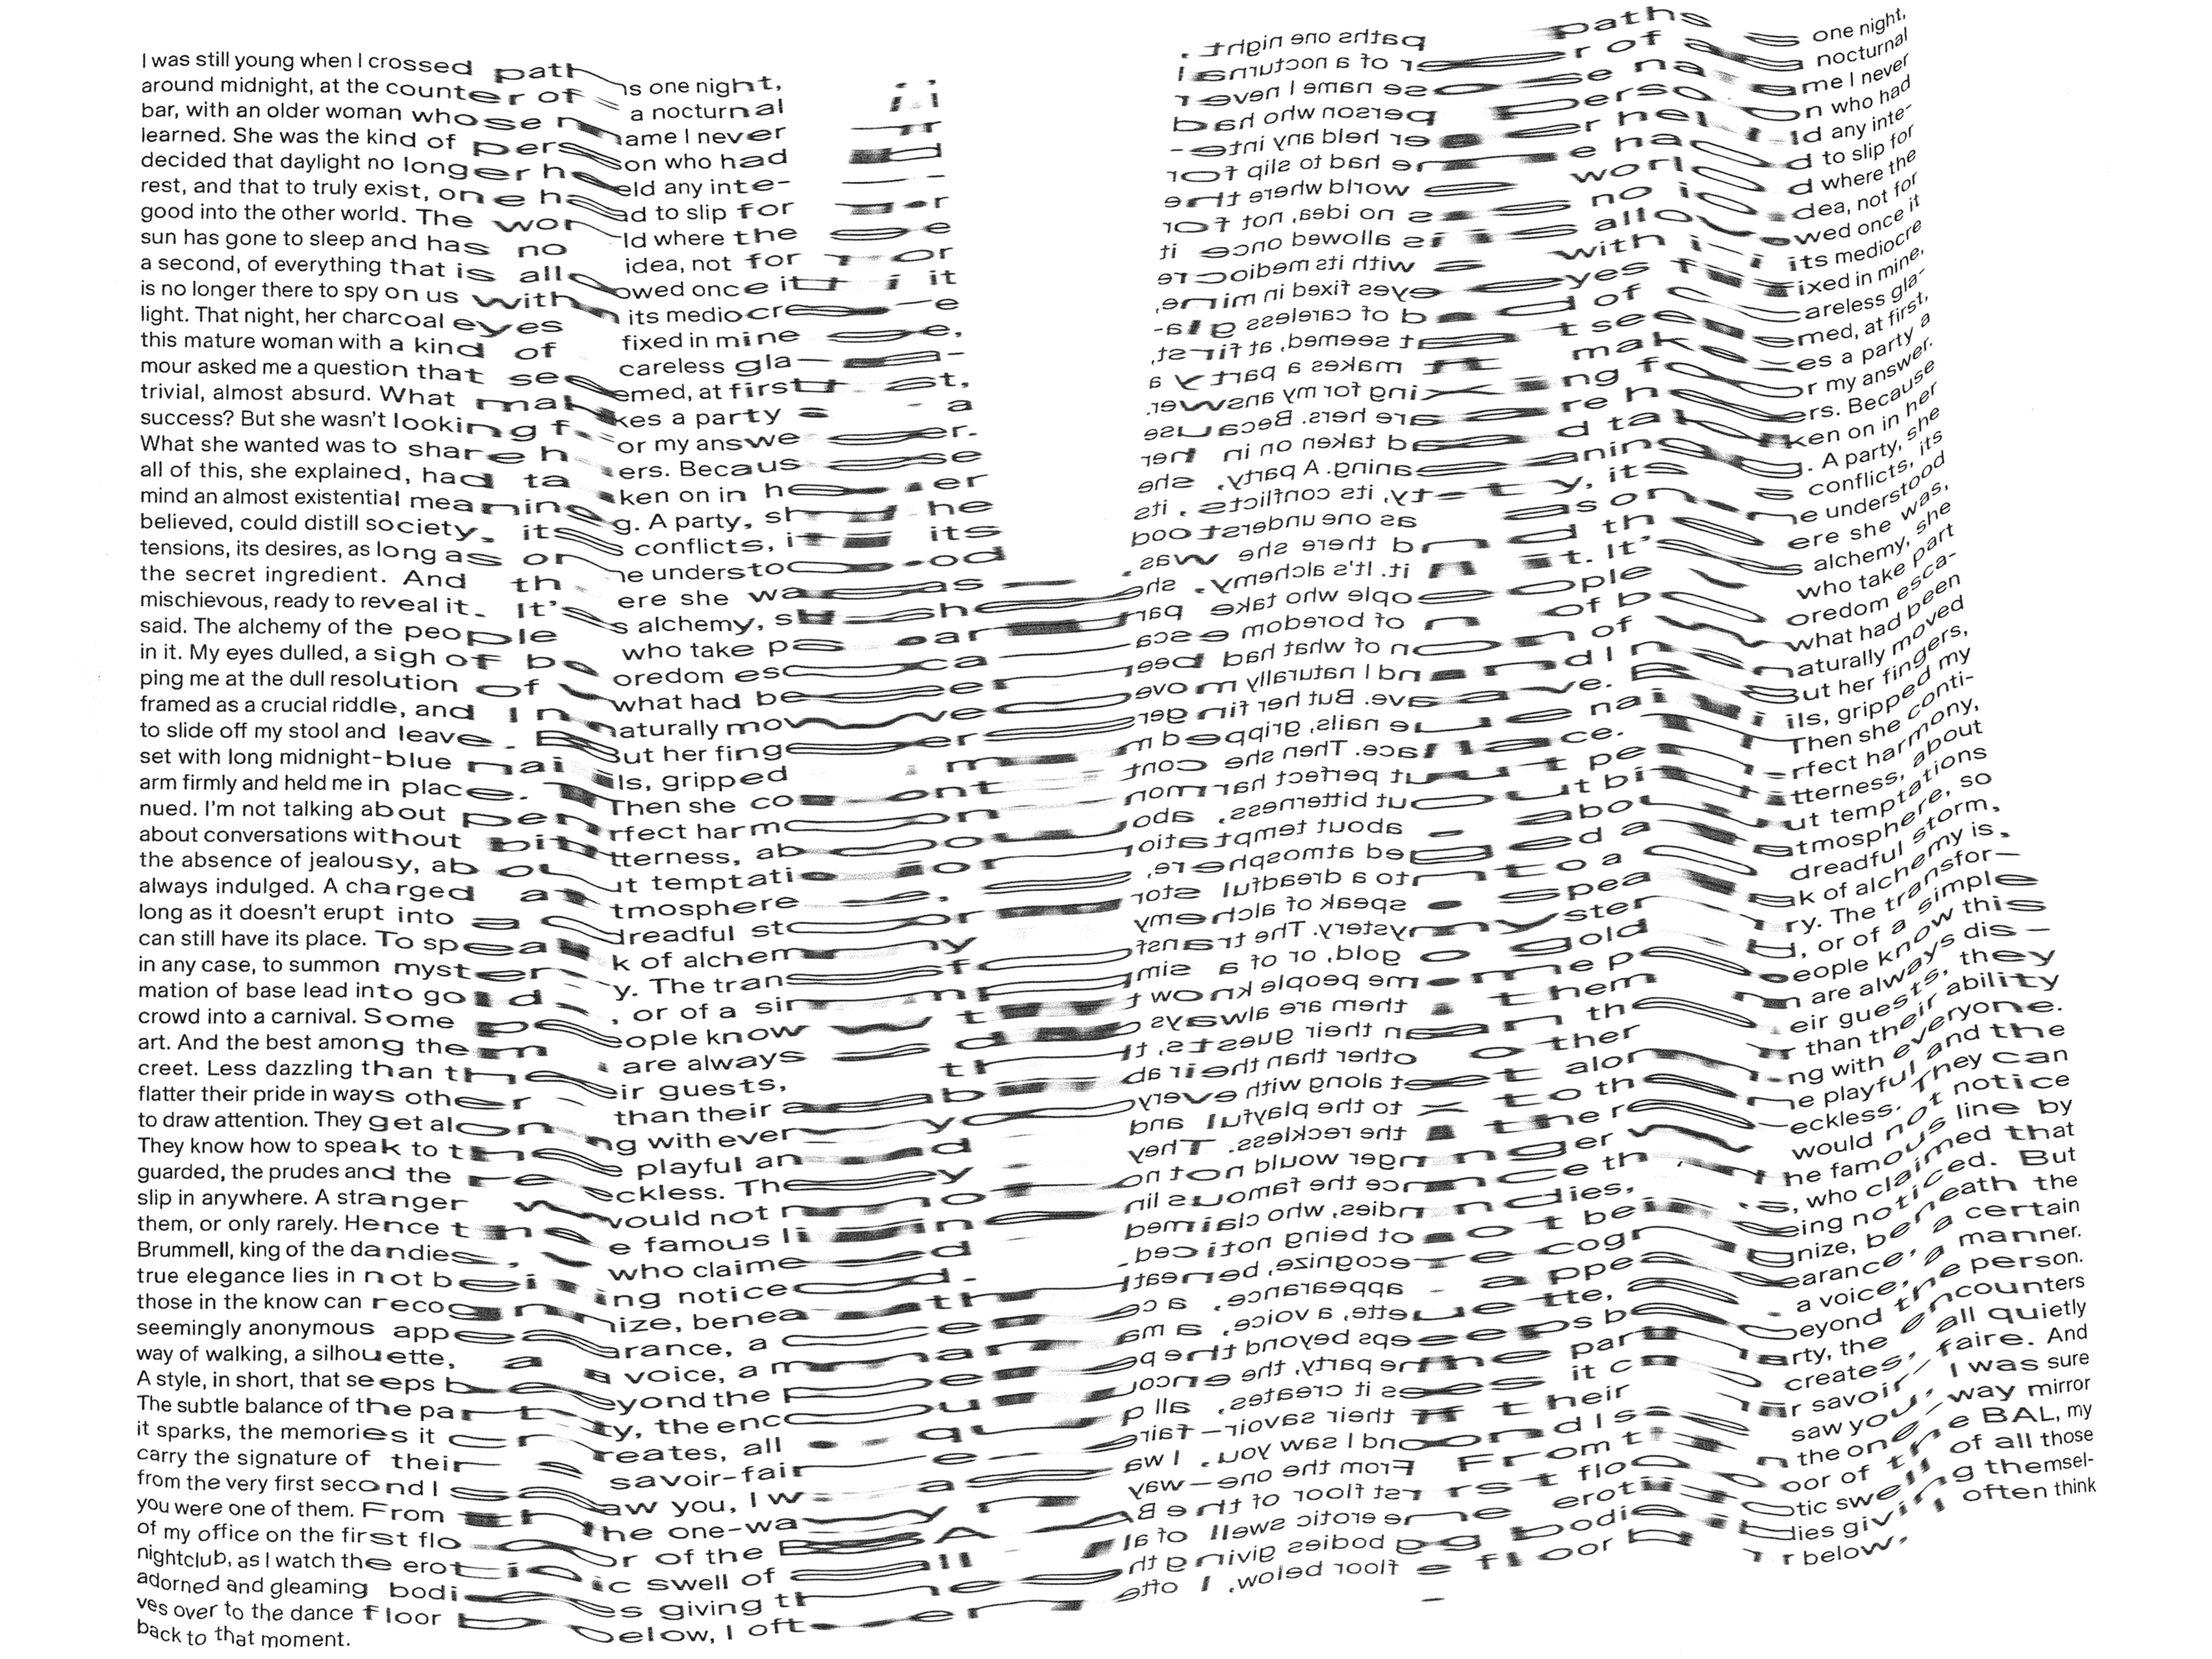 I was still young when I crossed paths one night,
around midnight, at the counter of a nocturnal
bar, with an older woman whose name I never
learned. She was the kind of person who had
decided that daylight no longer held any inte-
rest, and that to truly exist, one had to slip for
good into the other world. The world where the
sun has gone to sleep and has no idea, not for
a second, of everything that is allowed once it
is no longer there to spy on us with its mediocre
light. That night, her charcoal eyes fixed in mine,
this mature woman with a kind of careless gla-
mour asked me a question that seemed, at first,
trivial, almost absurd. What makes a party a
success? But she wasn't looking for my answer.
What she wanted was to share hers. Because
all of this, she explained, had taken on in her
mind an almost existential meaning. A party, she
believed, could distill society, its conflicts, its
tensions, its desires, as long as one understood
the secret ingredient. And there she was,
mischievous, ready to reveal it. It's alchemy, she
said. The alchemy of the people who take part
in it. My eyes dulled, a sigh of boredom esca-
ping me at the dull resolution of what had been
framed as a crucial riddle, and I naturally moved
to slide off my stool and leave. But her fingers,
set with long midnight-blue nails, gripped my
arm firmly and held me in place. Then she conti-
nued. I'm not talking about perfect harmony,
about conversations without bitterness, about
the absence of jealousy, about temptations
always indulged. A charged atmosphere, so
long as it doesn't erupt into a dreadful storm,
can still have its place. To speak of alchemy is,
in any case, to summon mystery. The transfor-
mation of base lead into gold, or of a simple
crowd into a carnival. Some people know this
art. And the best among them are always dis-
creet. Less dazzling than their guests, they
flatter their pride in ways other than their ability
to draw attention. They get along with everyone.
They know how to speak to the playful and the
guarded, the prudes and the reckless. They can
slip in anywhere. A stranger would not notice
them, or only rarely. Hence the famous line by
Brummell, king of the dandies, who claimed that
true elegance lies in not being noticed. But
those in the know can recognize, beneath the
seemingly anonymous appearance, a certain
way of walking, a silhouette, a voice, a manner.
A style, in short, that seeps beyond the person.
The subtle balance of the party, the encounters
it sparks, the memories it creates, all quietly
carry the signature of their savoir-faire. And
from the very first second I saw you, I was sure
you were one of them. From the one-way mirror
of my office on the first floor of the BAL, my
nightclub, as I watch the erotic swell of all those
adorned and gleaming bodies giving themsel-
ves over to the dance floor below, I often think
back to that moment.